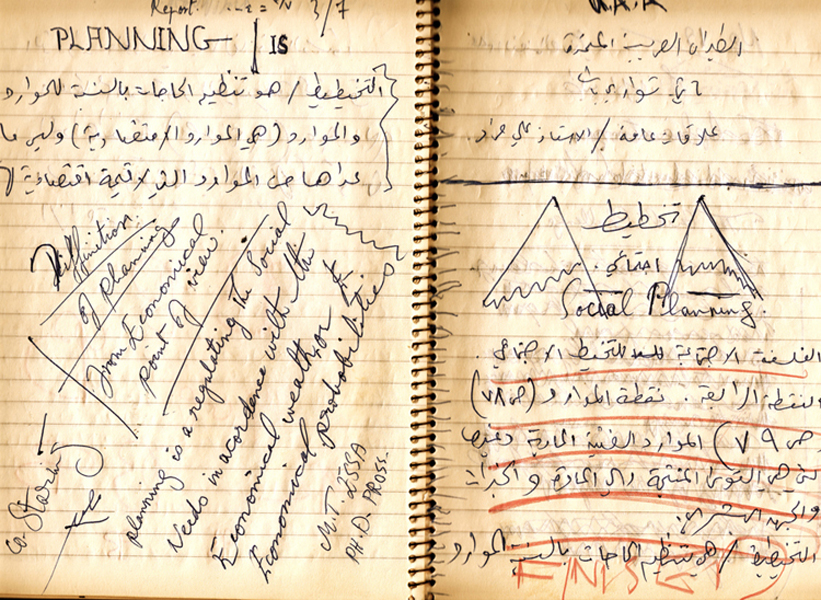 Report.
3/7
PLANNING IS
التخطيط / هو تنظيم الحاجات بالنسبة للموارد
والموارد (هي الموارد الاقتصادية) وليس ما
عداها من الموارد التي لا قيمة اقتصادية لها
Diffinition
of planning
from Economical
point of view.
planning is a regulating the Social
Needs in acordence with the
Economical wealth or
Economical probabilities
M.T. ESSA
PH.D. PROSS.
co. Staring
U.A.R
الطيران العربية المتحدة
علاقات عامة / الاستاذ علي
تخطيط
اجتماعي.
Social Planning.
الفلسفة الاجتماعية للتخطيط الاجتماعي.
النقطة الرابعة. نقطة الموارد (ص ٧٨)
ص ٧٩) الموارد الفنية المادية وغيرها
التي هي القوى المنتجة المادة والخبرات
التخطيط / هو تنظيم الحاجات بالنسبة للموارد